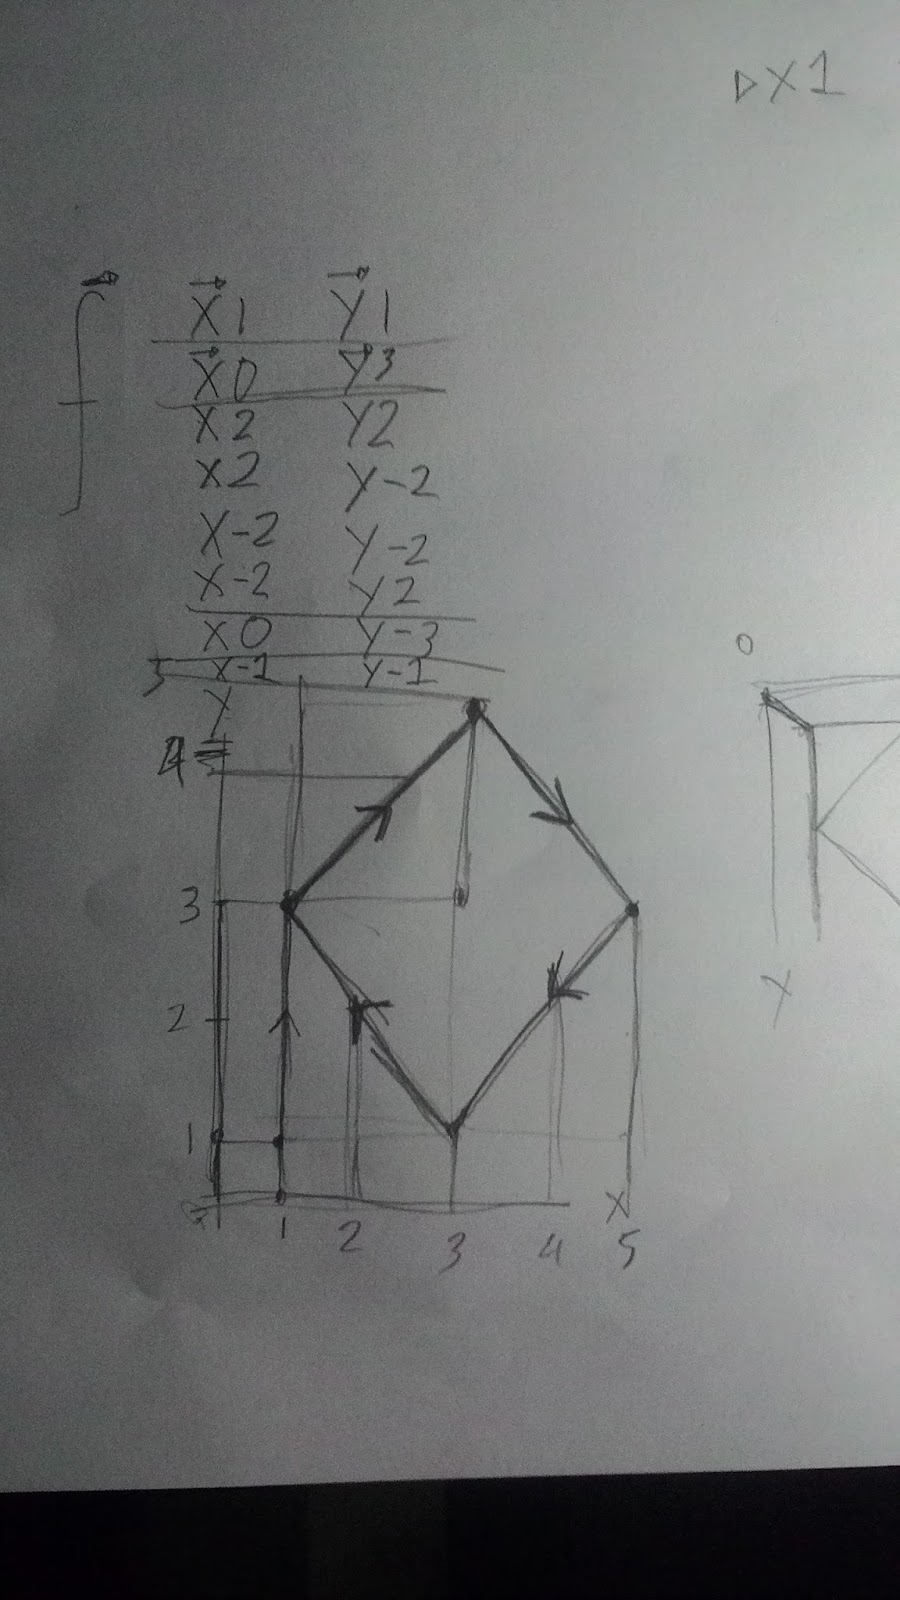 ▷X1
X1 Y1
X0 Y3
X2 Y2
X2 Y-2
X-2 Y-2
X-2 Y2
X0 Y-3
X-1 Y-1
5
Y
4
3
2
1
X
1 2 3 4 5
0
Y